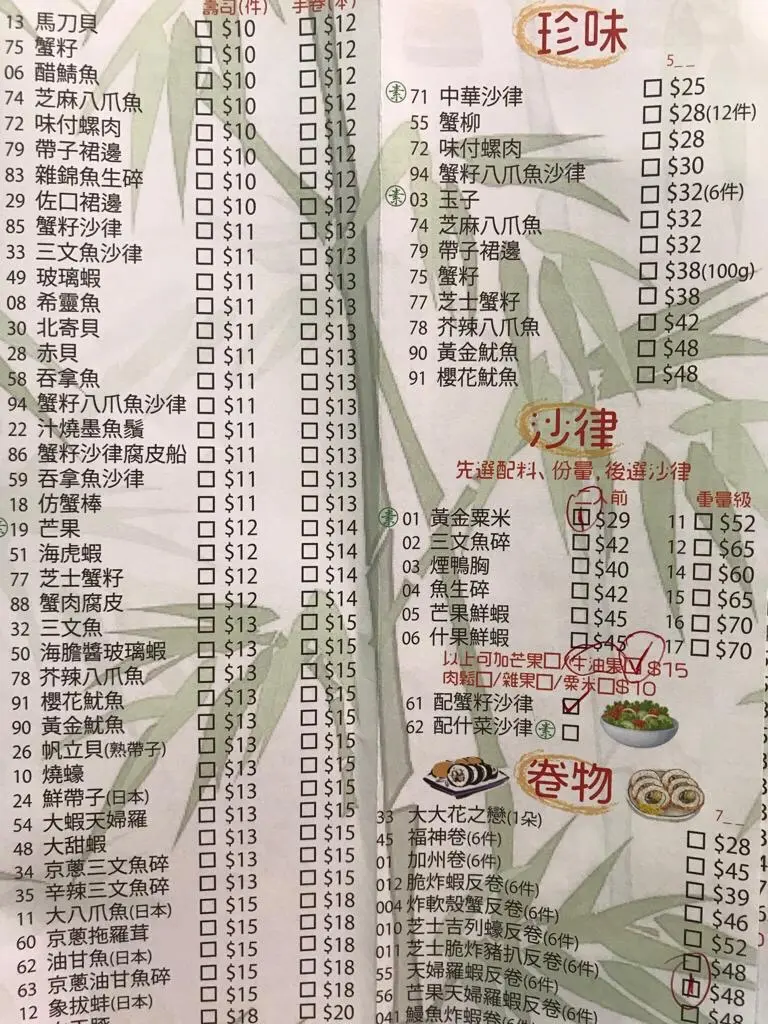 壽司(件) 手卷(本)
13 馬刀貝 $10 $12
75 蟹籽 $10 $12
06 醋鯖魚 $10 $12
74 芝麻八爪魚 $10 $12
72 味付螺肉 $10 $12
79 帶子裙邊 $10 $12
83 雜錦魚生碎 $10 $12
29 佐口裙邊 $10 $12
85 蟹籽沙律 $11 $13
33 三文魚沙律 $11 $13
49 玻璃蝦 $11 $13
08 希靈魚 $11 $13
30 北寄貝 $11 $13
28 赤貝 $11 $13
58 吞拿魚 $11 $13
94 蟹籽八爪魚沙律 $11 $13
22 汁燒墨魚鬚 $11 $13
86 蟹籽沙律腐皮船 $11 $13
59 吞拿魚沙律 $11 $13
18 仿蟹棒 $11 $13
素 19 芒果 $12 $14
51 海虎蝦 $12 $14
77 芝士蟹籽 $12 $14
88 蟹肉腐皮 $12 $14
32 三文魚 $13 $15
50 海膽醬玻璃蝦 $13 $15
78 芥辣八爪魚 $13 $15
91 櫻花魷魚 $13 $15
90 黃金魷魚 $13 $15
26 帆立貝(熟帶子) $13 $15
10 燒蠔 $13 $15
24 鮮帶子(日本) $13 $15
54 大蝦天婦羅 $13 $15
48 大甜蝦 $13 $15
34 京蔥三文魚碎 $13 $15
35 辛辣三文魚碎 $13 $15
11 大八爪魚(日本) $15 $18
60 京蔥拖羅茸 $15 $18
62 油甘魚(日本) $15 $18
63 京蔥油甘魚碎 $15 $18
12 象拔蚌(日本) $18 $20
珍味
5_ _
素 71 中華沙律 $25
55 蟹柳 $28(12件)
72 味付螺肉 $28
94 蟹籽八爪魚沙律 $30
素 03 玉子 $32(6件)
74 芝麻八爪魚 $32
79 帶子裙邊 $32
75 蟹籽 $38(100g)
77 芝士蟹籽 $38
78 芥辣八爪魚 $42
90 黃金魷魚 $48
91 櫻花魷魚 $48
沙律
先選配料、份量,後選沙律
二人前 重量級
素 01 黃金粟米 $29 11 $52
02 三文魚碎 $42 12 $65
03 煙鴨胸 $40 14 $60
04 魚生碎 $42 15 $65
05 芒果鮮蝦 $45 16 $70
06 什果鮮蝦 $45 17 $70
以上可加芒果□/牛油果□$15
肉鬆□/雜果□/粟米□$10
61 配蟹籽沙律
62 配什菜沙律 素
卷物
7_ _
33 大大花之戀(1朵) $28
45 福神卷(6件) $45
01 加州卷(6件) $39
012 脆炸蝦反卷(6件) $46
004 炸軟殼蟹反卷(6件) $52
010 芝士吉列蠔反卷(6件) $48
011 芝士脆炸豬扒反卷(6件) $48
55 天婦羅蝦反卷(6件) $48
56 芒果天婦羅蝦反卷(6件)
041 鰻魚炸蝦反卷(6件)